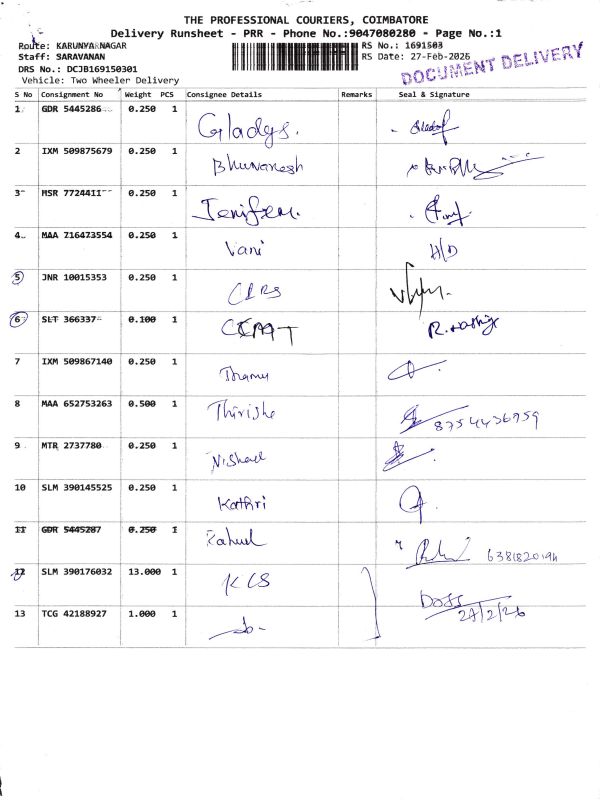 THE PROFESSIONAL COURIERS, COIMBATORE
Delivery Runsheet - PRR - Phone No.:9047080280 - Page No.:1
Route: KARUNYANAGAR RS No.: 1691503
Staff: SARAVANAN RS Date: 27-Feb-2026
DOCUMENT DELIVERY
DRS No.: DCJB169150301
Vehicle: Two Wheeler Delivery
S No Consignment No Weight PCS Consignee Details Remarks Seal & Signature
1 GDR 5445286 0.250 1 Gladys.
2 IXM 509875679 0.250 1 Bhuvanesh
3 MSR 7724411 0.250 1 Jenifer.
4 MAA 716473554 0.250 1 Vani H/D
5 JNR 10015353 0.250 1
6 SLT 366337 0.100 1
7 IXM 509867140 0.250 1
8 MAA 652753263 0.500 1 8754436959
9 MTR 2737780 0.250 1
10 SLM 390145525 0.250 1 Kathri
11 GDR 5445287 0.250 1 Rahul
12 SLM 390176032 13.000 1 KCS
13 TCG 42188927 1.000 1